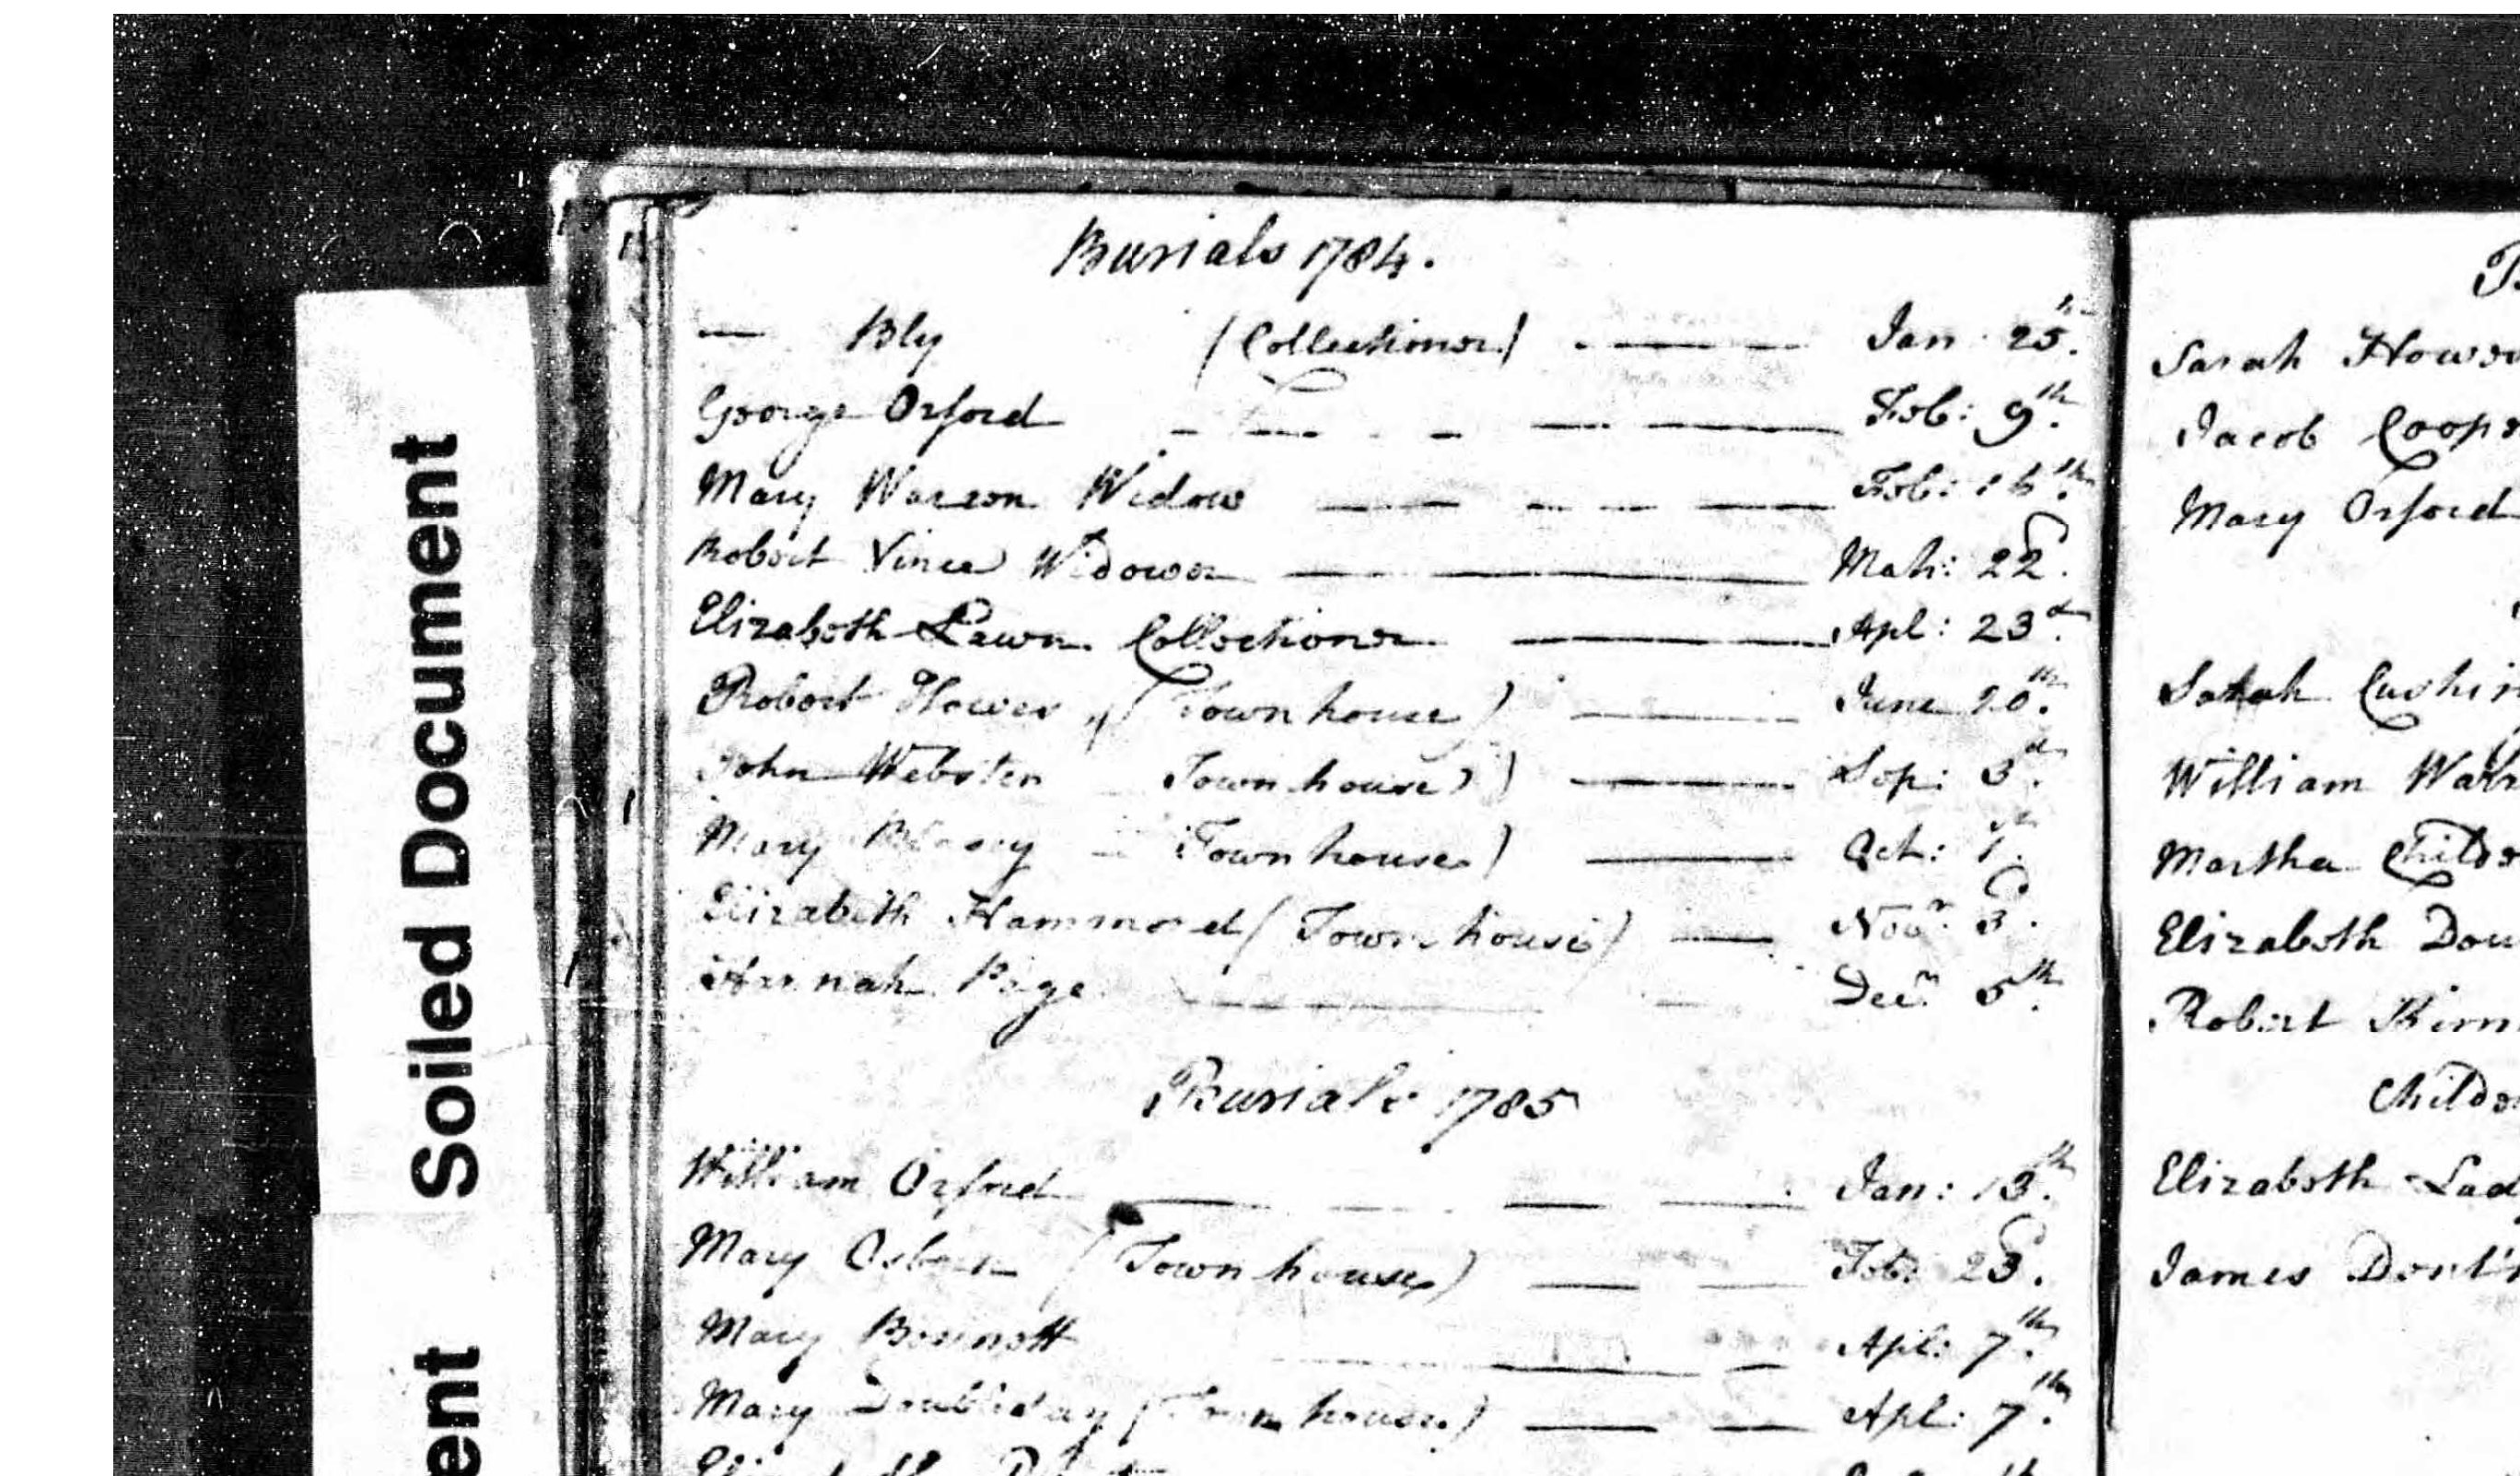 Soiled Document
ent
Burials 1784.
— Bly (Collectioner) — Jan: 25th.
George Orford — Feb: 9th.
Mary Warren Widow — Feb: 16th.
Robert Vince Widower — Mah: 22d.
Elizabeth Lawn Collectioner — Apl: 23d.
Robert Hower (Townhouse) — June 20th.
John Webster Townhouse) — Sep: 3d.
Mary Townhouse) — Oct:
Elizabeth Hammond (Townhouse) — Novr. 3d.
Hannah Page — Decr. 5th.
Burials 1785
William Orford — Jan: 13th.
Mary Osborn (Townhouse) — Feb: 23d.
Mary Bennett — Apl: 7th.
Mary Doubleday (Townhouse) — Apl: 7th.
Sarah
Jacob
Mary Orford
Sarah
William
Martha
Elizabeth
Robert
Elizabeth
James